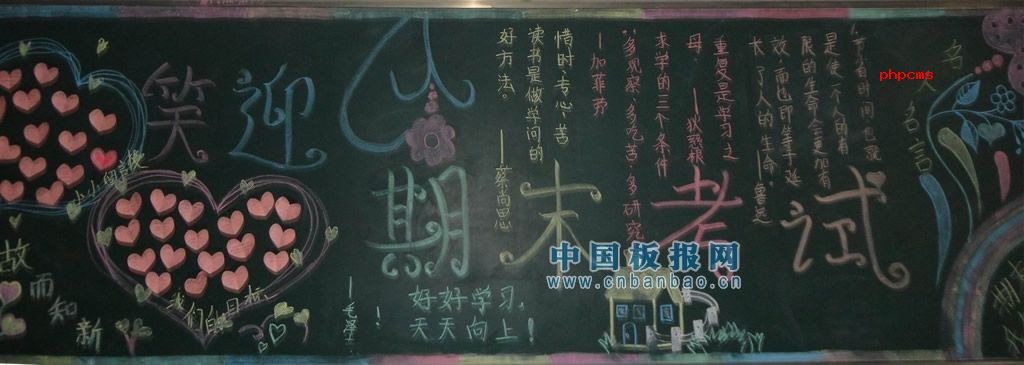 笑迎
期末考试
故而知新
我们的目标
好好学习,
天天向上!
——毛泽东
惜时、专心、苦
读书是做学问的
好方法。
——蔡尚思
重复是学习之
母。——狄慈根
求学的三个条件
"多观察、多吃苦、多研究"
——加菲劳
节省时间,也就
是使一个人的有
限的生命,更加有
效,而也即等于延
长了人的生命。——鲁迅
名人名言
phpcms
中国板报网
www.cnbanbao.cn